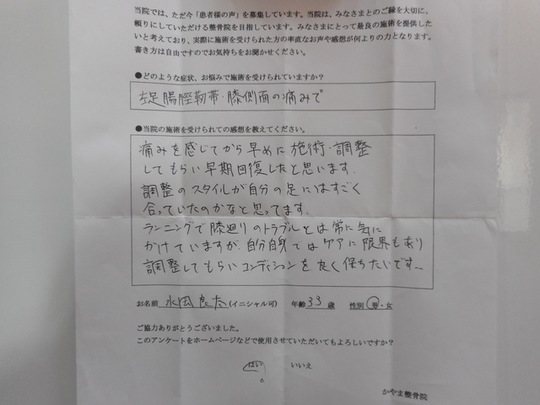 当院では、ただ今「患者様の声」を募集しています。当院は、みなさまとのご縁を大切に、
頼りにしていただける整骨院を目指しています。みなさまにとって最良の施術を提供したい
いと考えており、実際に施術を受けられた方の率直なお声や感想が何よりの力となります。
書き方は自由ですのでお気持ちをお聞かせください。
●どのような症状、お悩みで施術を受けられていますか?
左足 腸脛靭帯・膝側面の痛みで
●当院の施術を受けられての感想を教えてください。
痛みを感じてから早めに施術・調整
してもらい早期回復したと思います。
調整のスタイルが自分の足にはすごく
合っていたのかなと思ってます。
ランニングで膝廻りのトラブルとは常に気に
かけていますが、自分自身ではケアに限界もあり
調整してもらいコンディションを良く保ちたいです。
お名前 永田 良太 (イニシャル可) 年齢 33 歳 性別 男・女
ご協力ありがとうございました。
このアンケートをホームページなどで使用させていただいてもよろしいですか?
はい いいえ
かやま整骨院